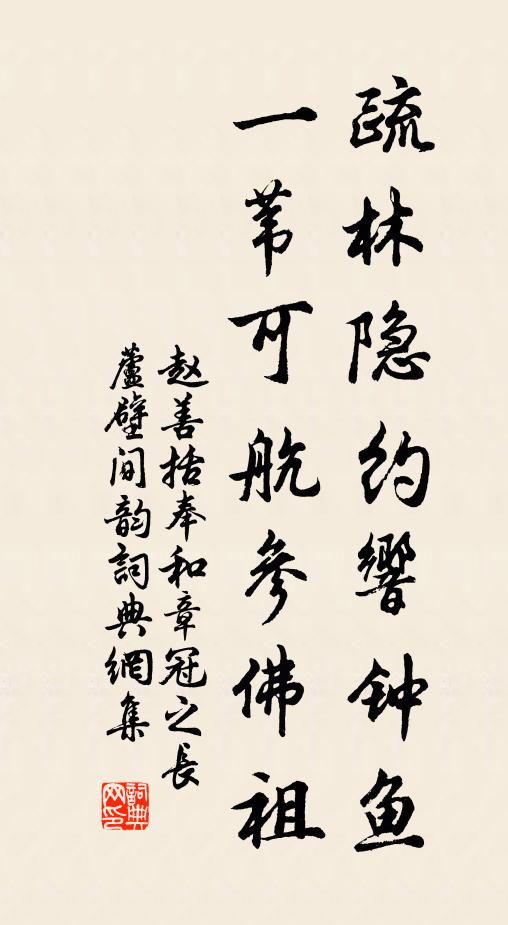 疏林隐约響钟鱼
一苇可航参佛祖
赵善括奉和章冠之長
蘆壁间韵詞典網集
詞典
网印